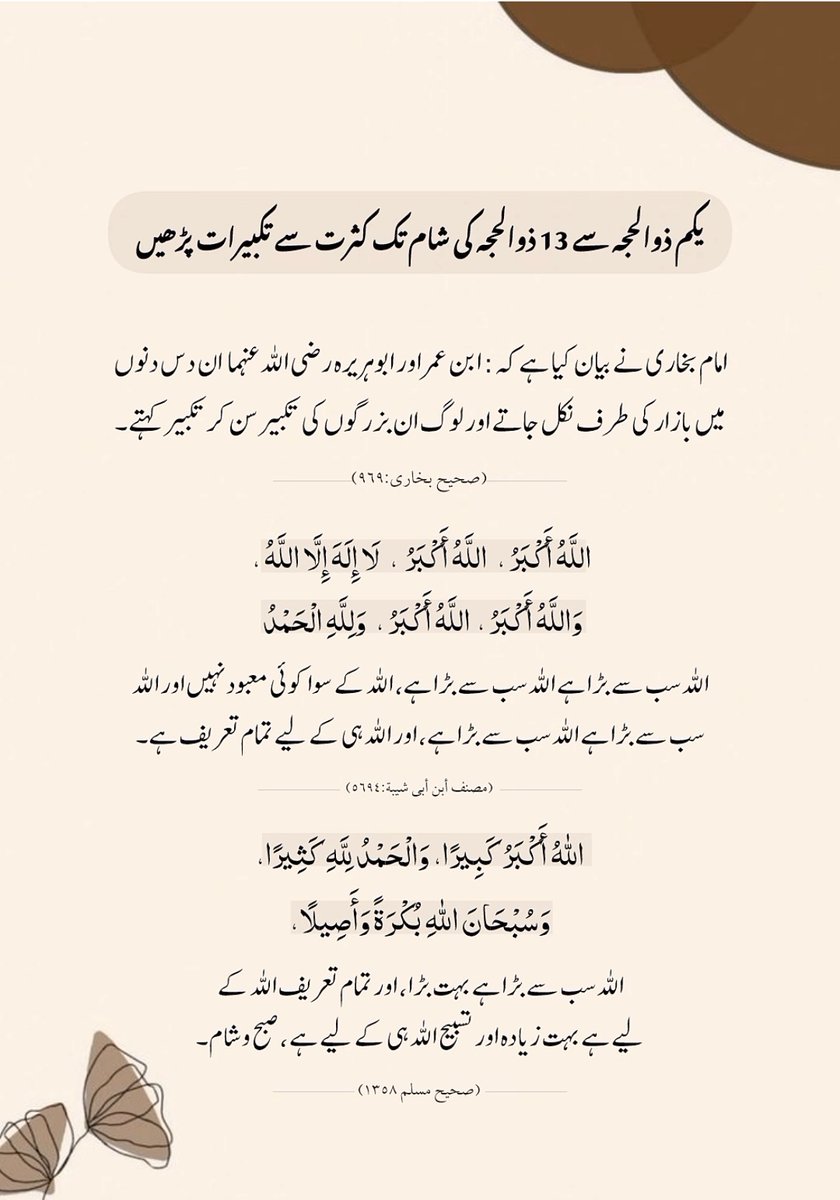 یکم ذوالحجہ سے 13 ذوالحجہ کی شام تک کثرت سے تکبیرات پڑھیں
امام بخاری نے بیان کیا ہے کہ : ابن عمر اور ابوہریرہ رضی اللہ عنہما ان دس دنوں
میں بازار کی طرف نکل جاتے اور لوگ ان بزرگوں کی تکبیر سن کر تکبیر کہتے۔
(صحیح بخاری:٩٦٩)
اللَّهُ أَكْبَرُ ، اللَّهُ أَكْبَرُ ، لَا إِلَهَ إِلَّا اللَّهُ ،
وَاللَّهُ أَكْبَرُ ، اللَّهُ أَكْبَرُ ، وَلِلَّهِ الْحَمْدُ
اللہ سب سے بڑا ہے اللہ سب سے بڑا ہے، اللہ کے سوا کوئی معبود نہیں اور اللہ
سب سے بڑا ہے اللہ سب سے بڑا ہے، اور اللہ ہی کے لیے تمام تعریف ہے۔
(مصنف أبن أبى شيبة:٥٦٩٤)
اللهُ أَكْبَرُ كَبِيرًا، وَالْحَمْدُ لِلَّهِ كَثِيرًا،
وَسُبْحَانَ اللهِ بُكْرَةً وَأَصِيلًا ،
اللہ سب سے بڑا ہے بہت بڑا، اور تمام تعریف اللہ کے
لیے ہے بہت زیادہ اور تسبیح اللہ ہی کے لیے ہے ، صبح و شام۔
(صحیح مسلم ١٣٥٨)